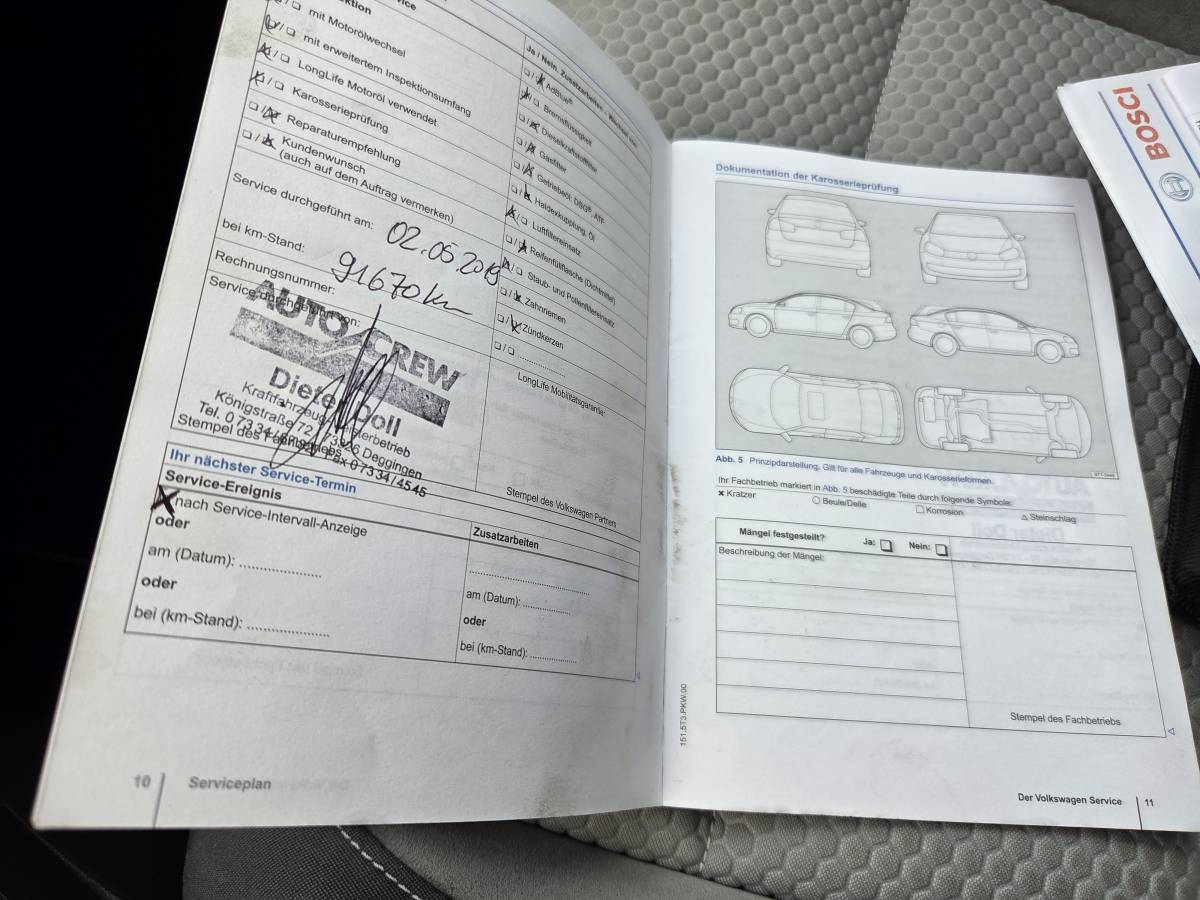 ktion
mit Motorölwechsel
mit erweitertem Inspektionsumfang
LongLife Motoröl verwendet
Karosserieprüfung
Reparaturempfehlung
Kundenwunsch
(auch auf dem Auftrag vermerken)
Service durchgeführt am: 02.05.2019
bei km-Stand: 91670 km
Rechnungsnummer:
Service durchgeführt von:
AUTO CREW
Dieter Doll
Königstraße 72 73326 Deggingen
Tel. 0 73 34 / Fax 0 73 34 / 45 45
Stempel des Fachbetriebs
Ja / Nein, Zusatzarbeiten
AdBlue®
Bremsflüssigkeit
Dieselkraftstofffilter
Gasfilter
Getriebeöl: DSG®, ATF
Haldexkupplung, Öl
Luftfiltereinsatz
Reifenfüllflasche (Dichtmittel)
Staub- und Pollenfiltereinsatz
Zahnriemen
Zündkerzen
LongLife Mobilitätsgarantie:
Stempel des Volkswagen Partners
Ihr nächster Service-Termin
Service-Ereignis
nach Service-Intervall-Anzeige
oder
am (Datum): ....................
oder
bei (km-Stand): ....................
Zusatzarbeiten
am (Datum): ............
oder
bei (km-Stand): ............
10 Serviceplan
Dokumentation der Karosserieprüfung
Abb. 5 Prinzipdarstellung. Gilt für alle Fahrzeuge und Karosserieformen.
Ihr Fachbetrieb markiert in Abb. 5 beschädigte Teile durch folgende Symbole:
Kratzer Beule/Delle Korrosion Steinschlag
Mängel festgestellt? Ja: Nein:
Beschreibung der Mängel:
Stempel des Fachbetriebs
151.5T3.PKW.00
Der Volkswagen Service 11
BOSCH